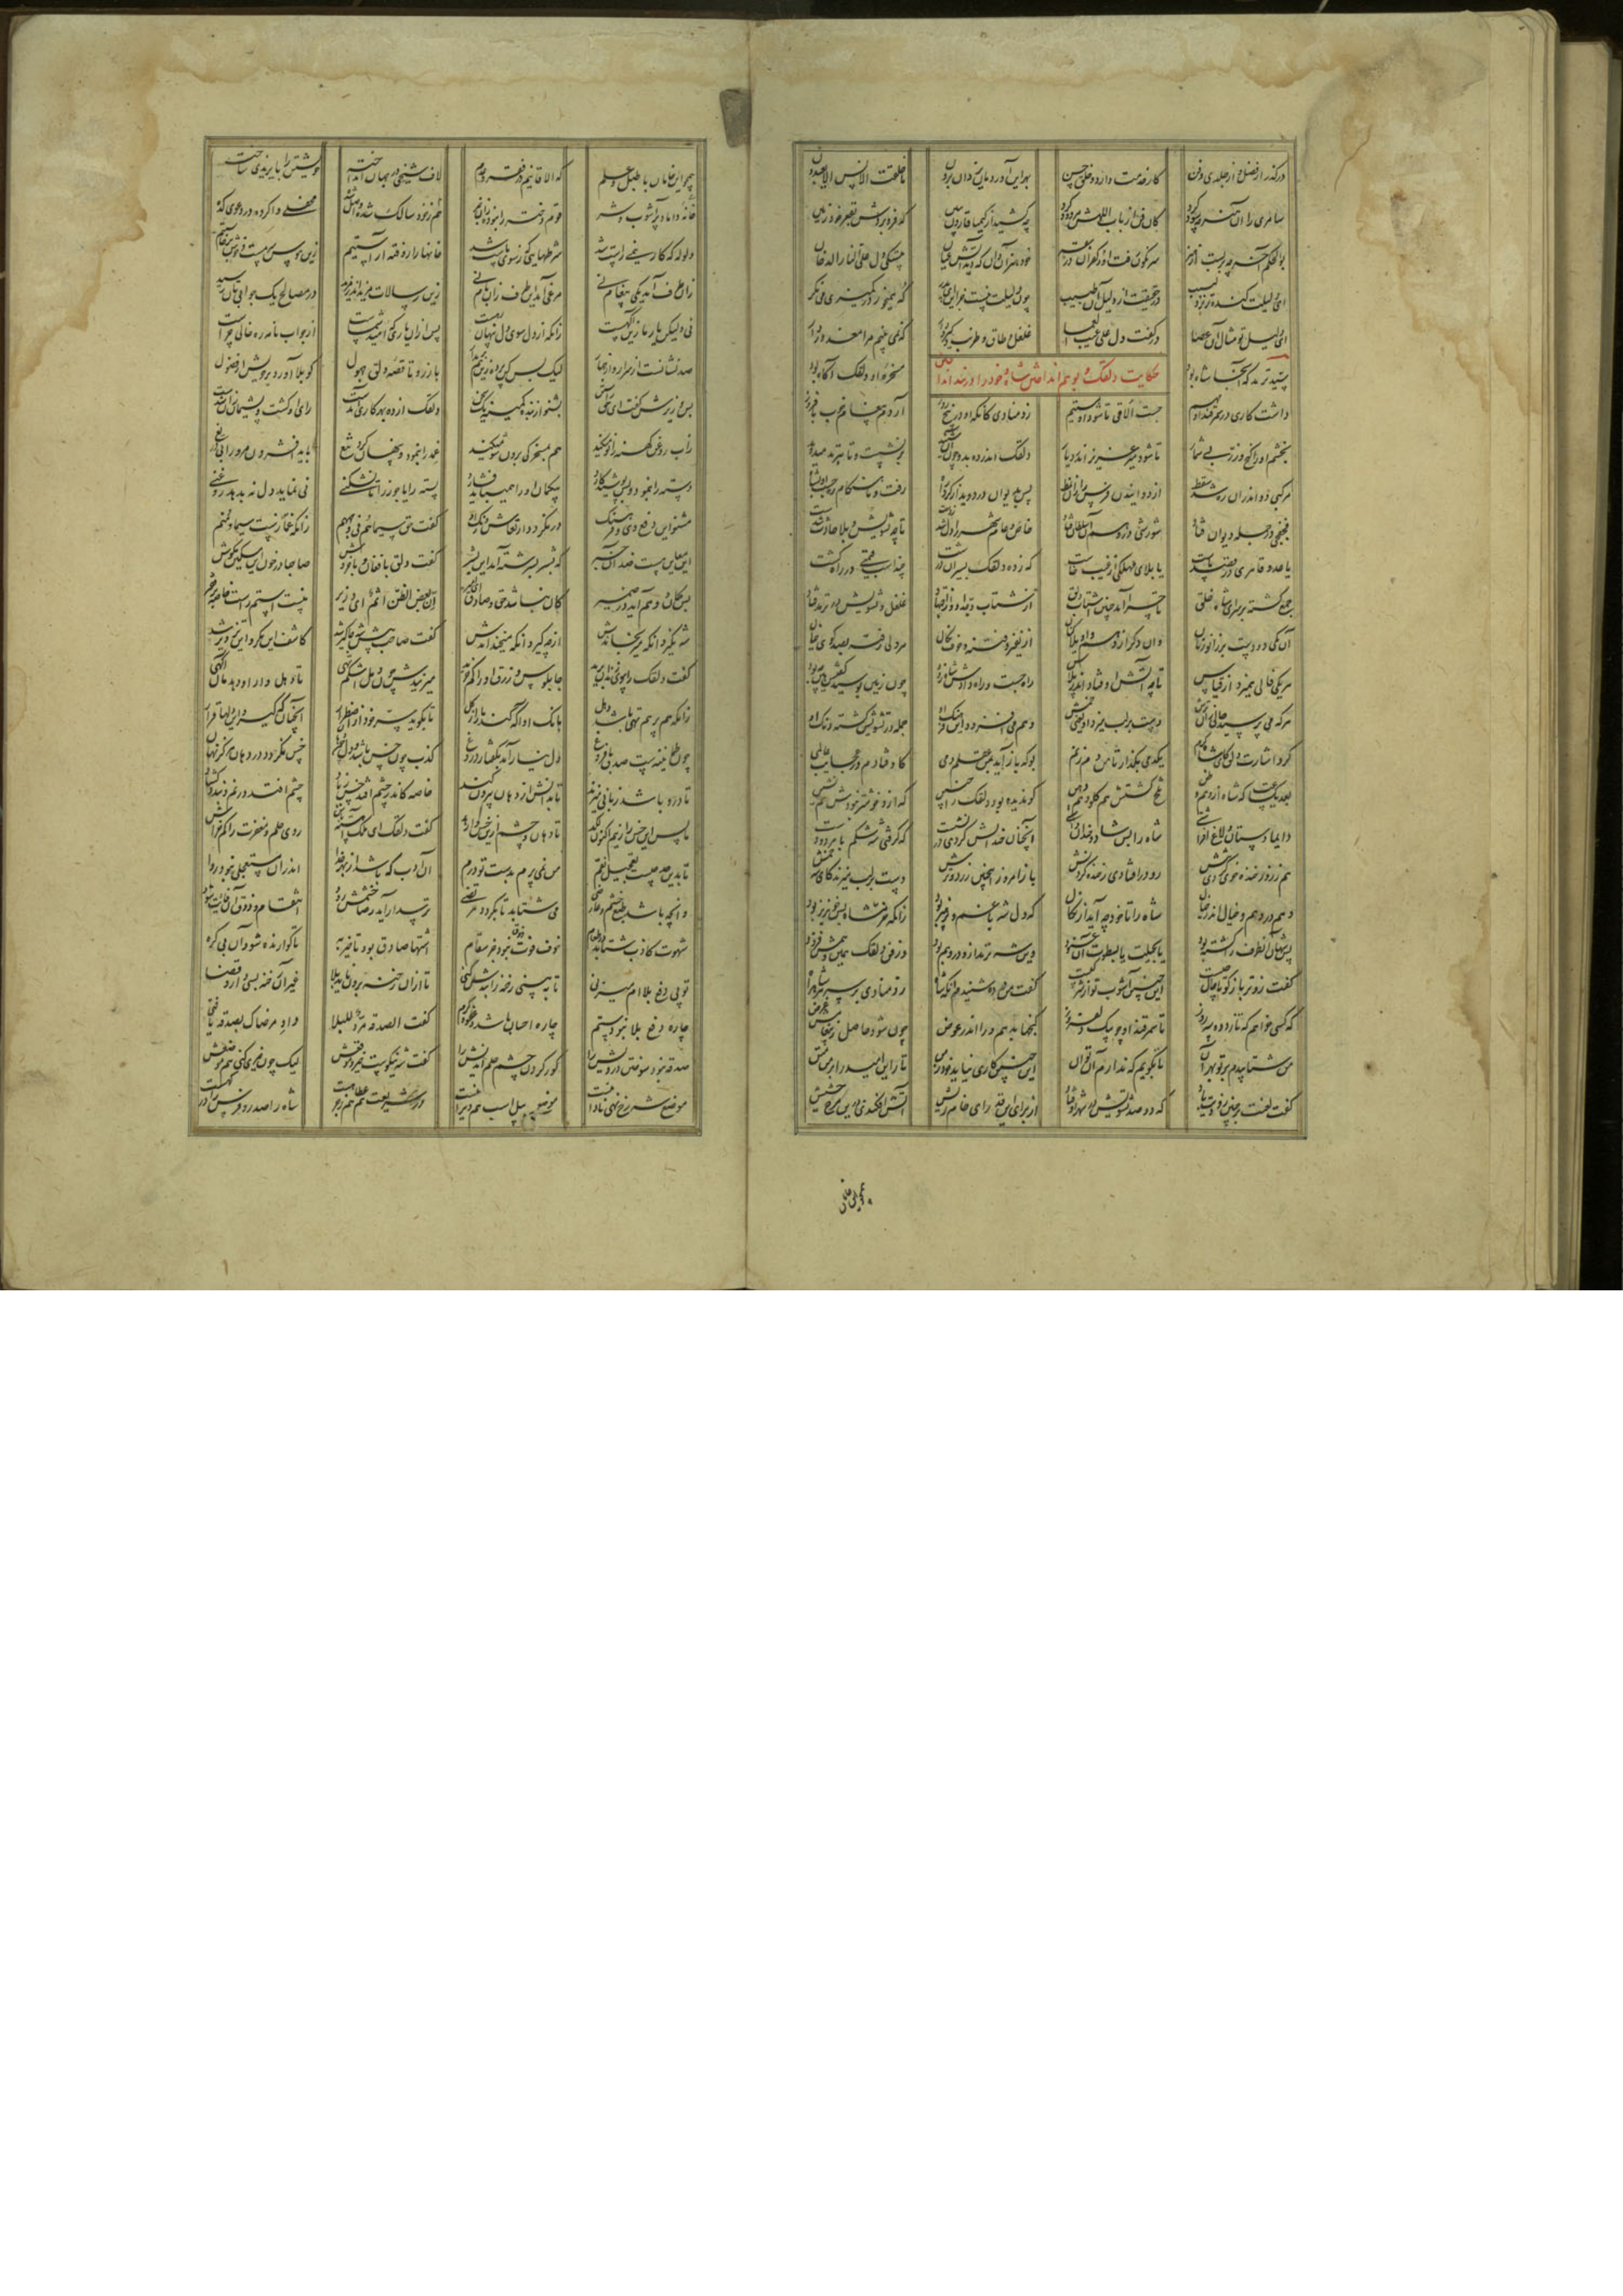 درگذر از فضل و از جلدی و فن کار خدمت دارد و خلق حسن بهر این آوردمان یزدان برون ما خلقت الانس الا یعبدون
سامری را آن هنر چه سود کرد کان فن از باب اللهش مردود کرد چه کشید از کیمیا قارون ببین که فرو بردش بقعر خود زمین
بوالحکم آخر چه بر بست از هنر سرنگون رفت او ز کفران در سقر خود هنر آن دان که دید آتش عیان دل علی النار الدخان
ای دلیلت گنده تر نزد لبیب در حقیقت از دلیل آن طبیب چون دلیلت نیست جز این ای پسر که میخور در کمیزی می نگر
ای دلیل تو مثال آن عصا در کفت دل علی عیب العما غلغل و طاق و طرنب و گیر و دار که نمی بینم مرا معذور دار
حکایت دلقک و خود را در
سید ترمد که آنجا شاه بود مسخره او دلقک آگاه بود
داشت کاری در سمرقند او مهم جست الاقی تا شود او مستتم زد منادی کانکه او در پنج روز آردم
بخشم او را گنج و زر بی شمار تا شود میر و عزیز اندر دیار دلقک اندر ده بد و چون آن شنید بر نشست و تا بترمد میدوید
مرکبی دو اندران ره شد سقط از دوانیدن فرس را زان نمط پس بدیوان در دوید از گرد راه
فجفجی در جمله دیوان فتاد شورشی در وهم آن سلطان فتاد خاص و عام شهر را دل شد ز دست تا چه تشویش و بلا حادث شدست
یا عدو قاهری در قصد ماست یا بلای مهلکی از غیب خاست که ز ده دلقک بسیران درشت چند اسب قیمتی در راه کشت
جمع گشته بر سرای شاه خلق تا چرا آمد چنین اشتاب دلق از شتاب او و جد و اجتهاد غلغل و تشویش در ترمد فتاد
آن یکی دو دست بر زانو زنان وان دگر از وهم واویلا کنان از نفیر و فتنه و خوف نکال هر دلی رفته بصد کوی خیال
هر یکی فالی همیزد از قیاس تا چه آتش اوفتاد اندر پلاس راه جست و راه دادش شاه زود چون زمین بوسید گفتش هی چه بود
هر که می پرسید حالی زان ترش دست بر لب میزد او یعنی خمش وهم می افزود ازین فرهنگ او جمله در تشویش گشته دنگ او
کرد اشارت دلق کای شاه کرم یکدمی بگذار تا من دم زنم بوکه باز آید بمن عقلم دمی که فتادم در عجایب عالمی
بعد یک ساعت که شاه از وهم و ظن تلخ گشتش هم گلو و هم دهن کو ندیده بود دلقک را چنین که ازو خوشتر نبودش همنشین
دایما دستان و لاغ افراشتی شاه را بس شاد و خندان داشتی آنچنان خندانش کردی در نشست که گرفتی شه شکم با هر دو دست
هم ز زور خنده خوی کردی تنش رو در افتادی ز خنده کردنش باز امروز اینچنین زرد و ترش دست بر لب میزند کای شه خمش
وهم در وهم و خیال اندر خیال شاه را تا خود چه آید از نکال که دل شه با غم و پرهیز بود زانکه خرمشاه بس خونریز بود
بس شهان آنطرف را کشته بود یا بحیلت یا بسطوت آن عنود وین شه ترمد ازو در وهم بود وز فن دلقک همین وهمش فزود
گفت زوتر باز گو تا حال چیست اینچنین آشوب تو از شر کیست گفت من در ده شنیدم آنکه شاه زد منادی بر سر هر شاه راه
که کسی خواهم که تازد در سه روز تا سمرقند او چو پیک دلفروز گنجها بدهم ورا اندر عوض چون شود حاصل ز پیغامش غرض
من شتابیدم بر تو بهر آن تا بگویم که ندارم آن توان اینچنین کاری نیاید خود ز من تا را این امید را بر من متن
گفت لعنت بر چنین زودیت باد که دو صد تشویش در شهر اوفتاد از برای این قدر ای خام ریش آتش افکندی درین مرج و حشیش
همچو این خامان با طبل و علم که الاقانیم در فقر و عدم لاف شیخی در جهان انداخته خویشتن را بایزیدی ساخته
هم ز خود سالک شده واصل شده محفلی وا کرده در دعوی کده خانه داماد پر آشوب و شر قوم دختر را نبوده زان خبر
ولوله که کار نیمی راست شد شرطهایی که ز سوی ماست شد خانها را روفته آراستیم زین هوس سرمست و خوش برخاستیم
زان طرف آمد یکی پیغام نی مرغی آمد این طرف زان بام نی زین رسالات مزید اندر مزید یک جوابی زان رسید
نی ولیکن یار ما زین آگهست زانکه از دل سوی دل پنهان رهست پس از آن یاری که امید شماست از جواب نامه ره خالی چراست
صد نشانست از سرار و از جهار لیک بس کن پرده زین بر مدار باز رو تا قصه دلق جهول کو بلا آورد بر خویش از فضول
بشنو از بنده کمینه یک سخن دلقک از ده بهر کاری آمدست رای او گشت و پشیمان آن شدست
ز آب و روغن کهنه را نو میکند هم بمسخرگی برون شو میکند غمد را بنمود و پنهان کرد تیغ باید افشردن مرو را بی دریغ
پسته را یا جوز را تا نشکنی نی نماید دل نه بدهد روغنی
مشنو این دفع وی و فرهنگ او در نگر در ارتعاش و رنگ او گفت حق سیماهم فی وجههم زانکه غمازست سیما و منم
این معاین هست ضد آن خبر که بشر بسرشته آمد این بشر گفت دلقک با فغان و با خروش صاحبا در خون این مسکین مکوش
بس گمان و وهم آید در ضمیر کان نباشد حق و صادق ای امیر ان بعض الظن اثم ای وزیر نیست استم راست خاصه بر فقیر
شه نگیرد آنکه میرنجاندش از چه گیرد آنکه میخنداندش گفت صاحب پیش شه جاگیر شد کاشف این مکر و این تزویر شد
گفت دلقک را سوی زندان برید چاپلوس و زرق او را کم خرید میزنیدش چون دهل اشکم تهی تا دهل وار او دهد مان آگهی
زانکه هم پر هم تهی باشد دهل بانگ او آگه کند ما را ز کل تا بگوید سر خود از اضطرار آنچنان که گیرد این دلها قرار
چون طمانینه ست صدق با فروغ دل نیارامد بگفتار دروغ کذب چون خس باشد و دل چون دهان خس نگردد در دهان هرگز نهان
تا درو باشد زبانی میزند تا بدانش از دهان بیرون کند خاصه کاندر چشم افتد خس ز باد چشم افتد در نم و بند و گشاد
ما پس این خس را زنیم اکنون لگد تا دهان و چشم ازین خس وا رهد گفت دلقک ای ملک آهسته باش روی حلم و مغفرت را کم خراش
تا بدین حد چیست تعجیل نقم من نمی پرم بدست تو درم آن ادب که باشد از بهر خدا اندران مستعجلی نبود روا
وانچه باشد طبع و خشم و عارضی می شتابد تا نگردد مرتضی ترسد ار آید رضا خشمش رود انتقام و ذوق آن فایت شود
شهوت کاذب شتابد در طعام خوف فوت ذوق نبود جز سقام اشتها صادق بود تاخیر به تا گوارنده شود آن بی گره
تو پی دفع بلاام میزنی تا ببینی رخنه را بندش کنی تا ازان رخنه برون ناید بلا غیر آن رخنه بسی دارد قضا
چاره دفع بلا نبود ستم چاره احسان باشد و عفو و کرم گفت الصدقه مرد للبلا داو مرضاک بصدقه یا فتی
صدقه نبود سوختن درویش را کور کردن چشم حلم اندیش را گفت شه نیکوست خیر و موقعش لیک چون خیری کنی در موضعش
موضع رخ شه نهی موضع شه پیل اسب هم در شریعت هم عطا هم زجر شاه را صدر و فرس را در